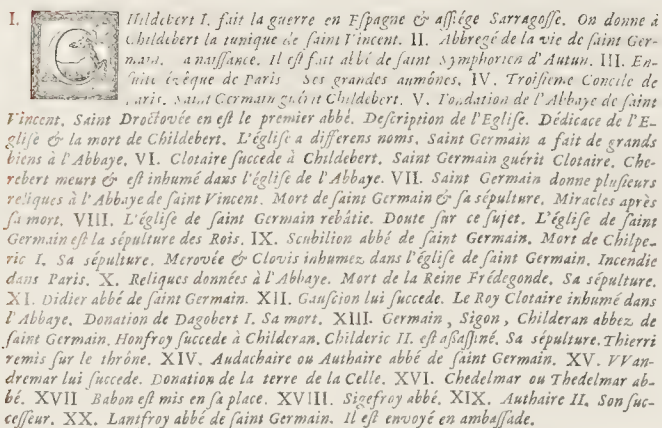 I. CHildebert I. fait la guerre en Eſpagne & aſſiége Sarragoſſe. On donne à
Childebert la tunique de ſaint Vincent. II. Abbregé de la vie de ſaint Ger-
main. naiſſance. Il eſt fait abbé de ſaint Symphorien d'Autun. III. En-
ſuite évêque de Paris Ses grandes aumônes. IV. Troiſieme Concile de
Paris. Saint Germain guérit Childebert. V. Fondation de l'Abbaye de ſaint
Vincent. Saint Droctovée en eſt le premier abbé. Deſcription de l'Egliſe. Dédicace de l'E-
gliſe & la mort de Childebert. L'égliſe a differens noms. Saint Germain a fait de grands
biens à l'Abbaye. VI. Clotaire ſuccede à Childebert. Saint Germain guérit Clotaire. Che-
rebert meurt & eſt inhumé dans l'égliſe de l'Abbaye. VII. Saint Germain donne pluſieurs
reliques à l'Abbaye de ſaint Vincent. Mort de ſaint Germain & ſa ſépulture. Miracles après
ſa mort. VIII. L'égliſe de ſaint Germain rebâtie. Doute ſur ce ſujet. L'égliſe de ſaint
Germain eſt la ſépulture des Rois. IX. Scubilion abbé de ſaint Germain. Mort de Chilpe-
ric I. Sa ſépulture. Merovée & Clovis inhumez dans l'égliſe de ſaint Germain. Incendie
dans Paris. X. Reliques données à l'Abbaye. Mort de la Reine Frédegonde. Sa ſépulture.
XI. Didier abbé de ſaint Germain. XII. Gauſcion lui ſuccede. Le Roy Clotaire inhumé dans
l'Abbaye. Donation de Dagobert I. Sa mort. XIII. Germain, Sigon, Childeran abbez de
ſaint Germain. Honfroy ſuccede à Childeran. Childeric II. eſt aſſaſſiné. Sa ſépulture. Thierri
remis ſur le thrône. XIV. Audachaire ou Authaire abbé de ſaint Germain. XV. VVan-
dremar lui ſuccede. Donation de la terre de la Celle. XVI. Chedelmar ou Thedelmar ab-
bé. XVII Babon eſt mis en ſa place. XVIII. Sigefroy abbé. XIX. Authaire II. Son ſuc-
ceſſeur. XX. Lantfroy abbé de ſaint Germain. Il eſt envoyé en ambaſſade.